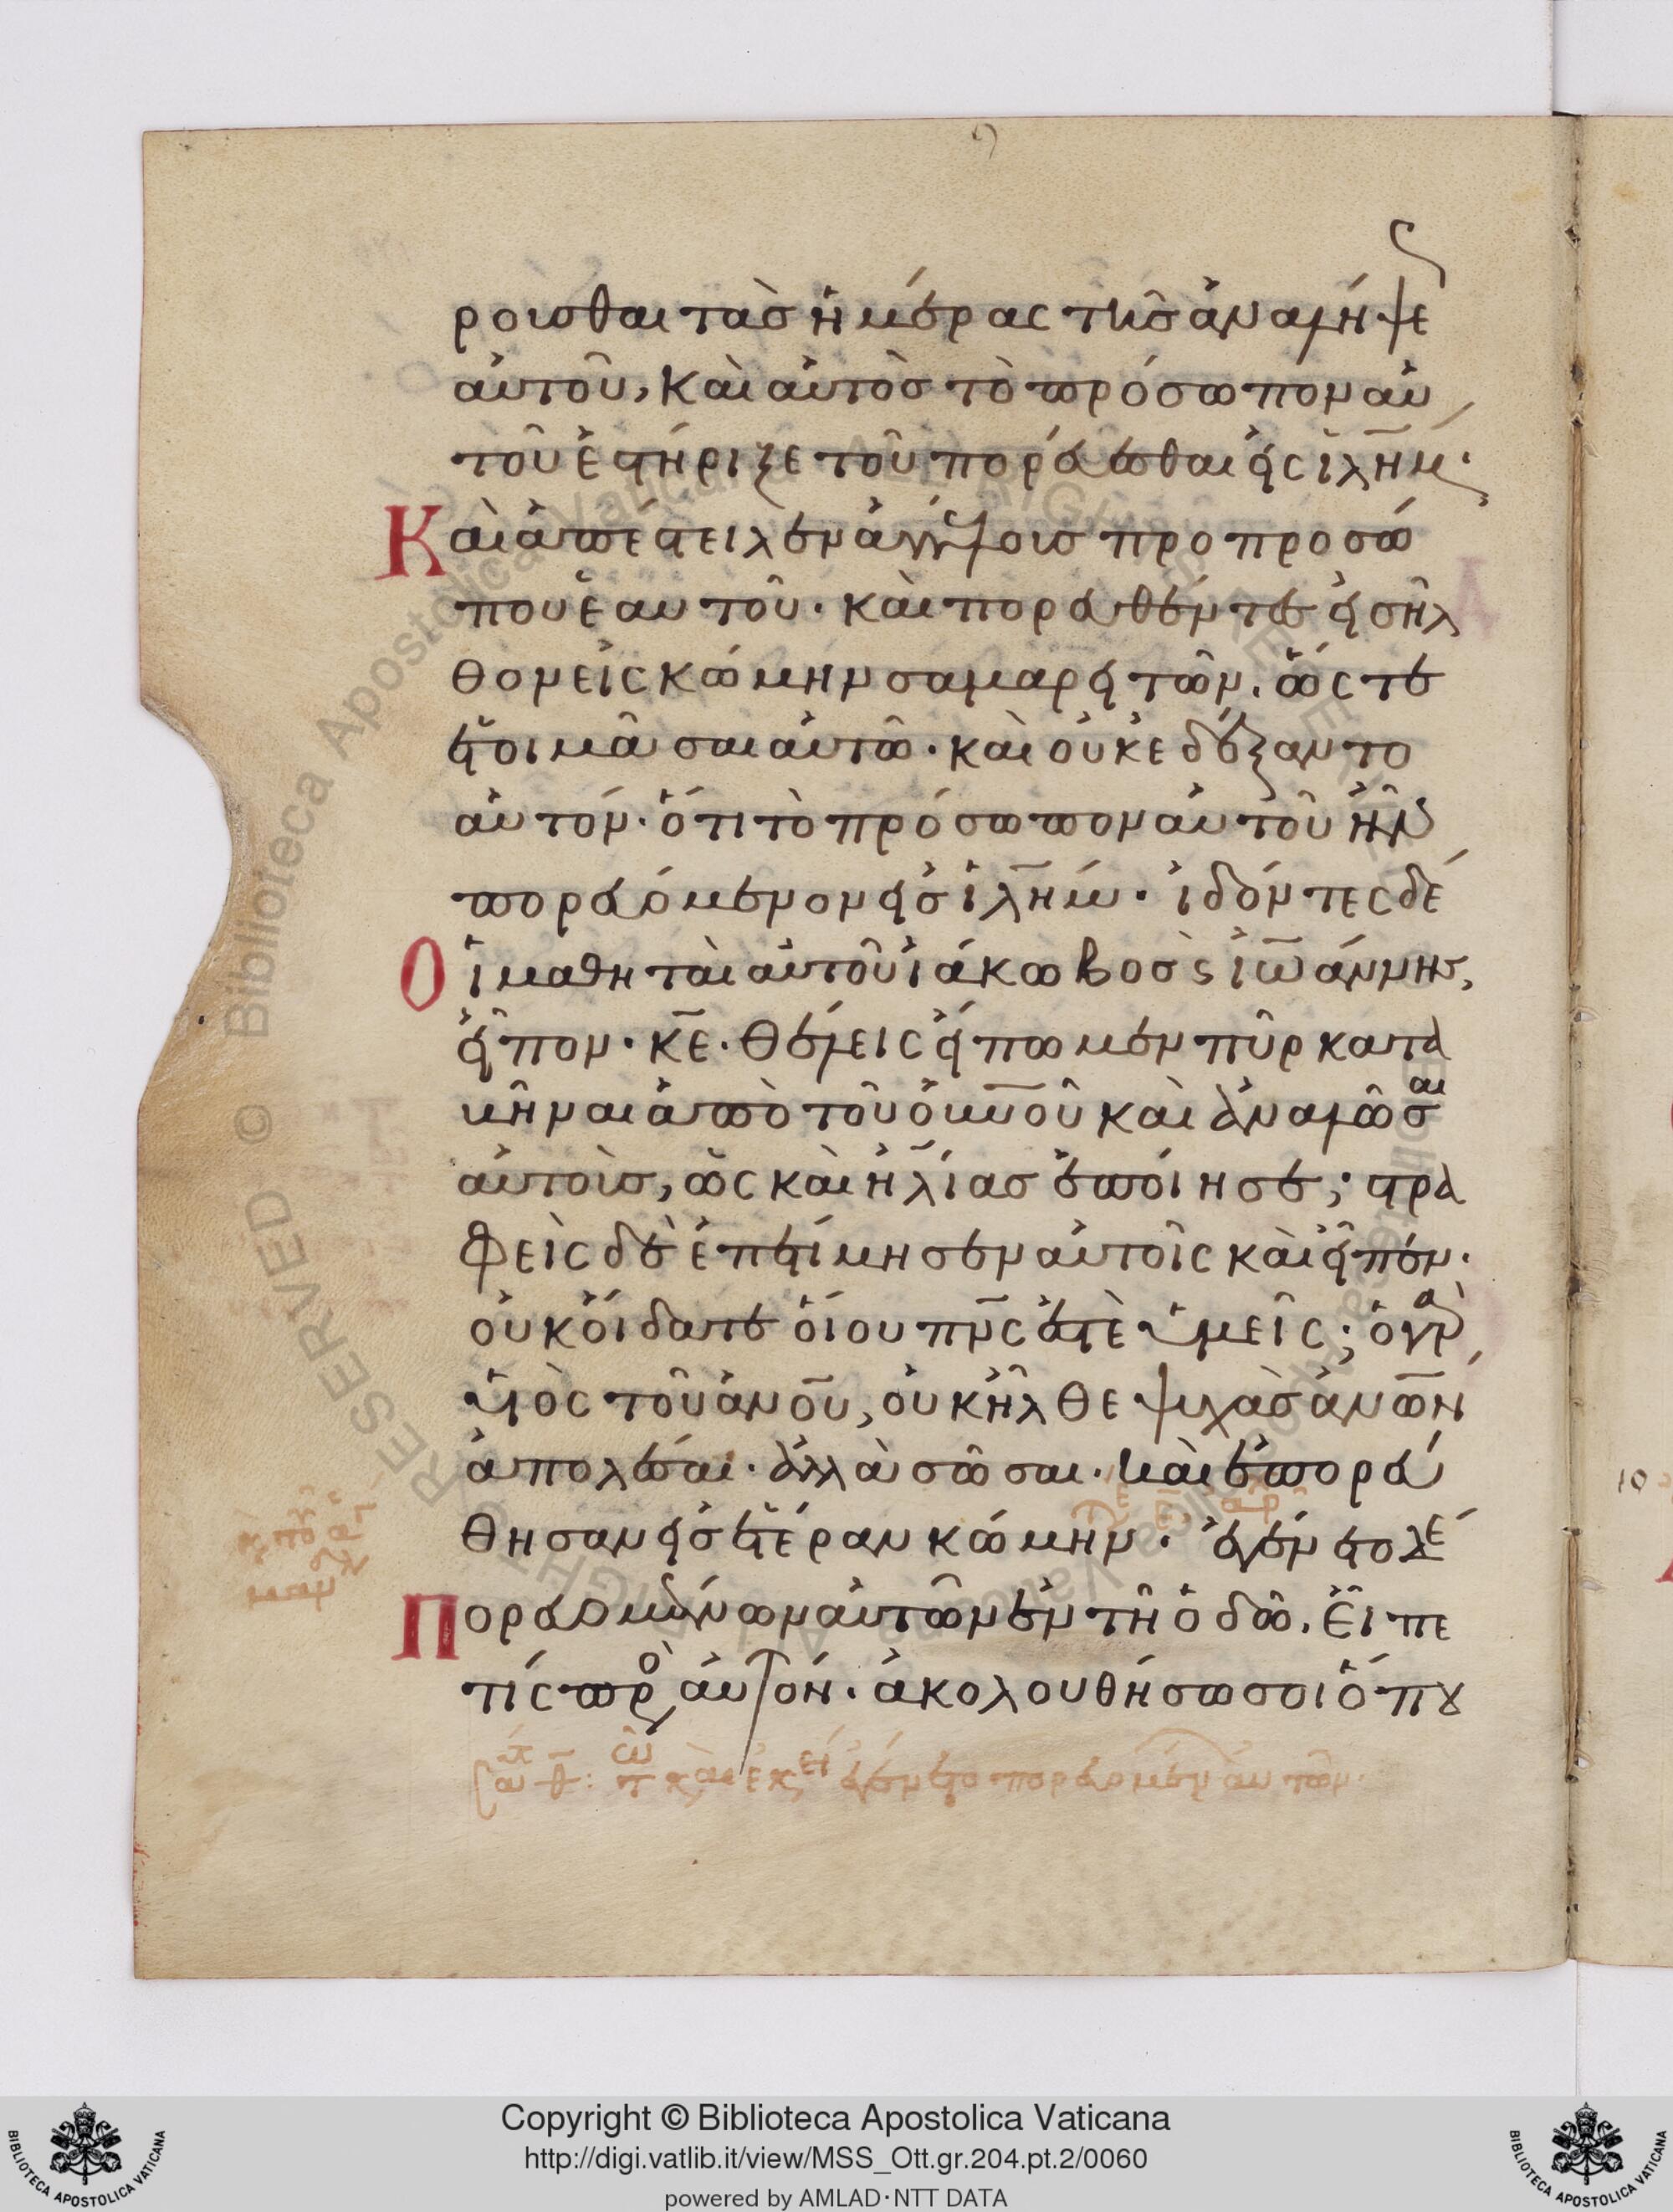 ροῦσθαι τὰσ ἡμέρας τῆσ ἀναλήψε
αὐτοῦ, καὶ αὐτὸσ τὸ πρόσωπον αὐ
τοῦ ἐστήριξε τοῦ πορεύεσθαι εἰς ἰλῆμ·
Καὶ ἀπέστειλεν ἀγγέλουσ προ προσώ
που ἑαυτοῦ· καὶ πορευθέντεσ εἰσῆλ
θον εἰς κώμην σαμαρειτῶν. ὥς τε
ἑτοιμᾶσαι αὐτῶ· καὶ οὐκ ἐδέξαντο
αὐτόν· ὅτι τὸ πρόσωπον αὐτοῦ ἦν
πορευόμενον εἰσ ἰλήμ· ἰδόντες δέ
Οἱ μαθηταὶ αὐτοῦ ἰάκωβοσ ϗ ἰωάννησ,
εἶπον· κε· θέλεις εἴπωμεν πῦρ κατα
βῆναι ἀπὸ τοῦ οὐνοῦ καὶ ἀναλῶσαι
αὐτοὺσ, ὡς καὶ ἠλίασ ἐποίησε; στρα
φεὶς δὲ ἐπετίμησεν αὐτοῖς καὶ εἶπεν·
οὐκ οἴδατε οἵου πνς ἐστὲ ὑμεῖς; ὁ γὰρ
υἱὸς τοῦ ἀνου, οὐκ ἦλθε ψυχὰσ ἀνων
ἀπολέσαι· ἀλλὰ σῶσαι· καὶ ἐπορεύ
θησαν εἰσ ἑτέραν κώμην· ἐγένετο δὲ
Πορευομένων αὐτῶν ἐν τῆ ὁδῶ. εἶπε
τίς πρὸ αὐτόν· ἀκολουθήσω σοι ὅπου
ἐγένετο πορευομένων αὐτῶν·
10
Copyright © Biblioteca Apostolica Vaticana
http://digi.vatlib.it/view/MSS_Ott.gr.204.pt.2/0060
powered by AMLAD·NTT DATA
BIBLIOTECA APOSTOLICA VATICANA
BIBLIOTECA APOSTOLICA VATICANA